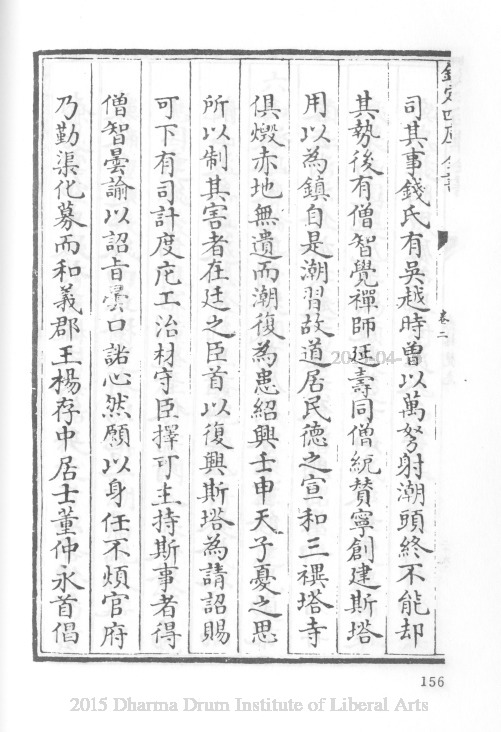 欽定四庫全書
卷二
司其事錢氏有吳越時曾以萬弩射潮頭終不能却
其勢後有僧智覺禪師延壽同僧統賛寧創建斯塔
用以為鎮自是潮習故道居民德之宣和三禩塔寺
俱燬赤地無遺而潮復為患紹興壬申天子憂之思
所以制其害者在廷之臣首以復興斯塔為請詔賜
可下有司計度庀工治材守臣擇可主持斯事者得
僧智曇諭以詔旨曇口諾心然願以身任不煩官府
乃勤渠化募而和義郡王楊存中居士董仲永首倡
156
2015 Dharma Drum Institute of Liberal Arts